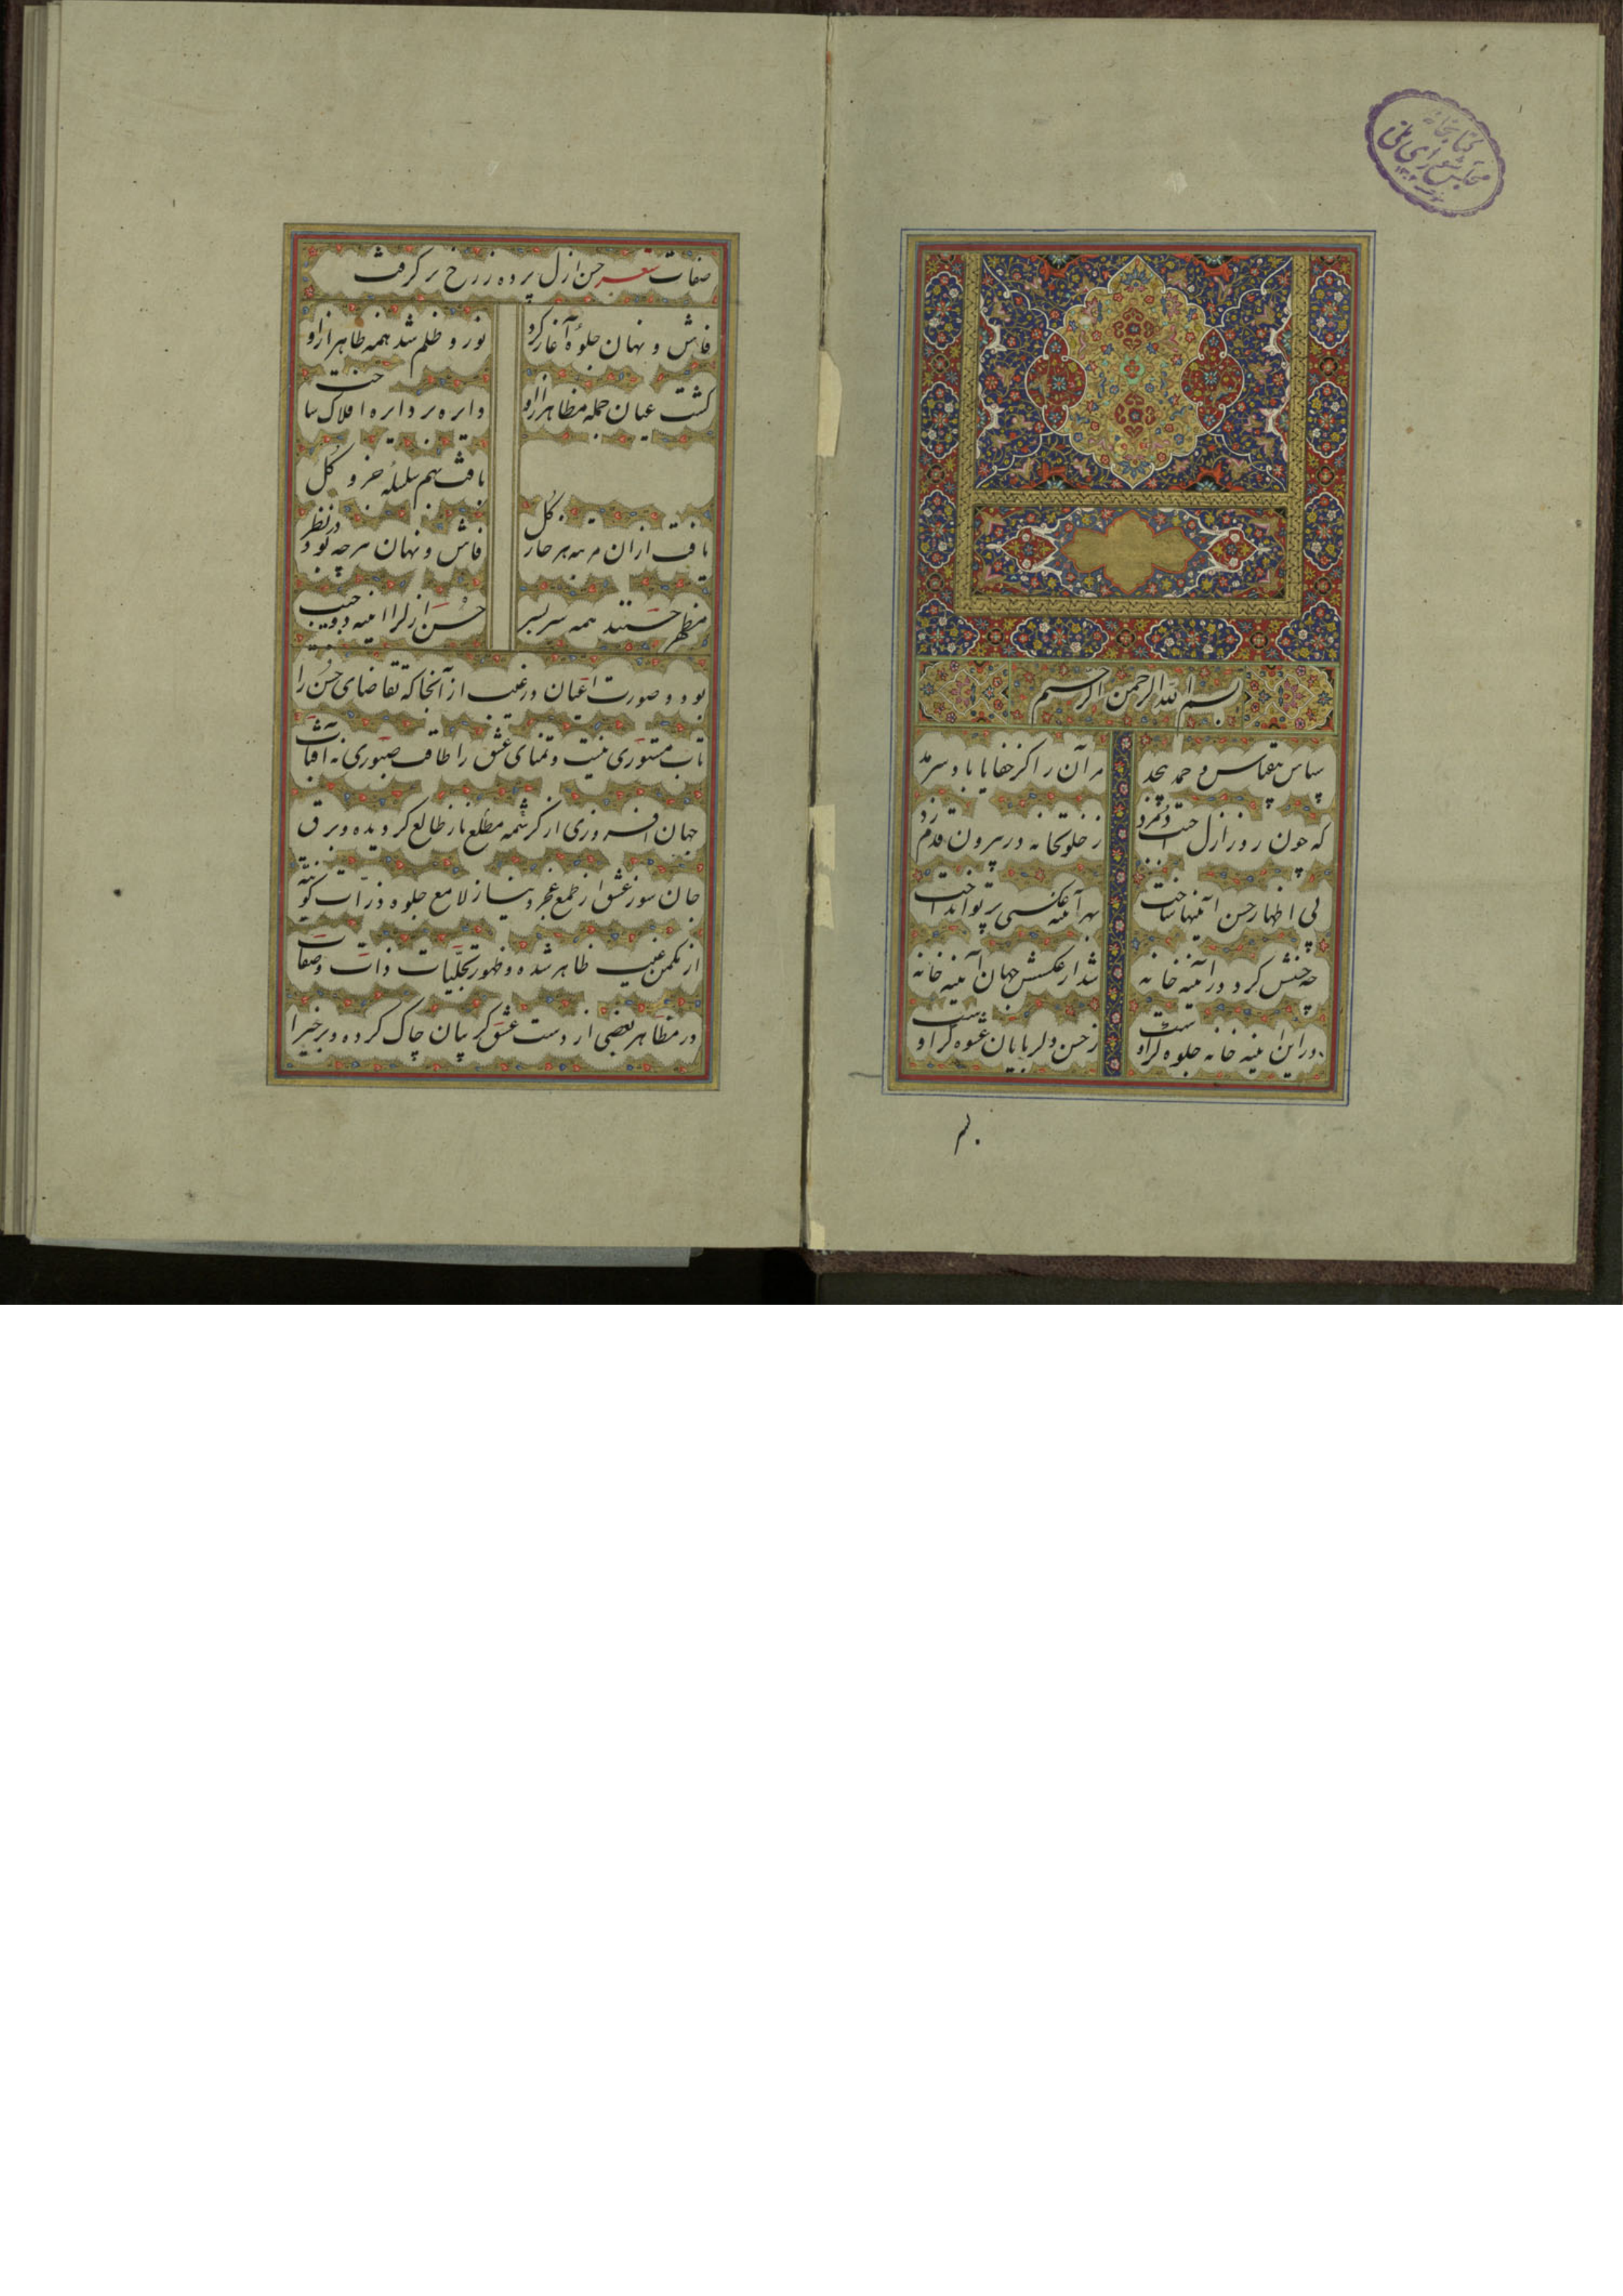 کتابخانه
مجلس شورای ملی
بسم الله الرحمن الرحیم
سپاس بیقیاس و حمد بیحد
مر آن را کز خفایا با سرمد
که چون روز ازل حسنت دم زد
ز خلوتخانه در بیرون قدم زد
پی اظهار حسن آئینها ساخت
بهر آئینه عکسی پرتو انداخت
چه حسنش کرد در آئینه خانه
شد از عکسش جهان آئینه خانه
در این آئینه خانه جلوه گر اوست
ز حسن دلربایان عشوه گر اوست
صفات شعر حسن ازل پرده ز رخ بر گرفت
فاش و نهان جلوه آغاز کرد
نور و ظلم شد همه ظاهر از او
گشت عیان جمله مظاهر از او
دایره بر دایره افلاک ساخت
یافت بهم سلسله جزو و کل
یافت از آن مرتبه هر خار گل
فاش و نهان هر چه بود در نظر
مظهر حسنند همه سر بسر
حسن ازل را آئینه در جیب
بود و صورت اعیان در غیب از آنجا که تقاضای حسن را
تاب مستوری نیست و تمنای عشق را طاقت صبوری نه آفتاب
جهان افروزی از کرشمه مطلع ناز طالع گردیده و برق
جان سوز عشق از طمع عجز و نیاز لامع جلوه ذرات کونیه
از مکمن غیب ظاهر شده و ظهور تجلیات ذات و صفات
در مظاهر بعضی از دست عشق گریبان چاک کرده و برخی را